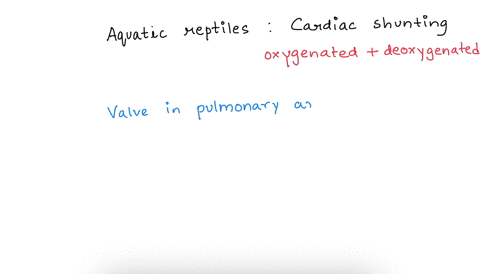 Aquatic reptiles : Cardiac shunting
oxygenated + deoxygenated
Valve in pulmonary ar